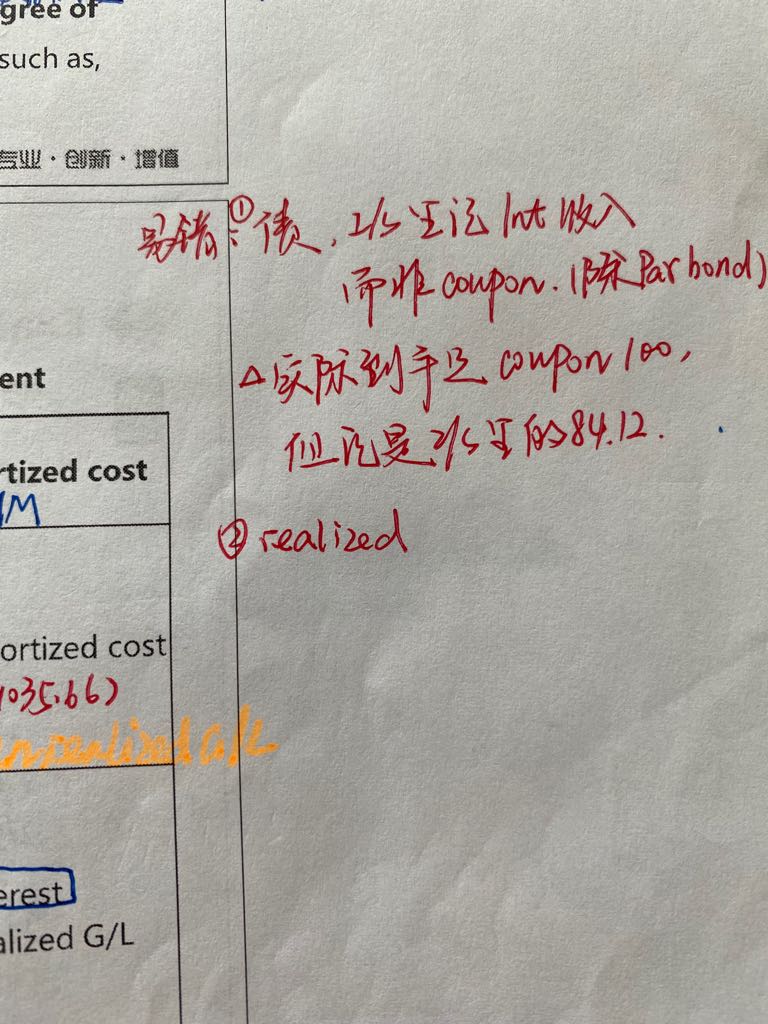 gree of
such as,
专业·创新·增值
易错:①债,I/S上记Int收入
而非coupon.(除Par bond)
△实际到手是coupon 100,
但记是I/S上的84.12.
ent
rtized cost
②realized
ortized cost
1035.66)
unrealized G/L
erest
alized G/L